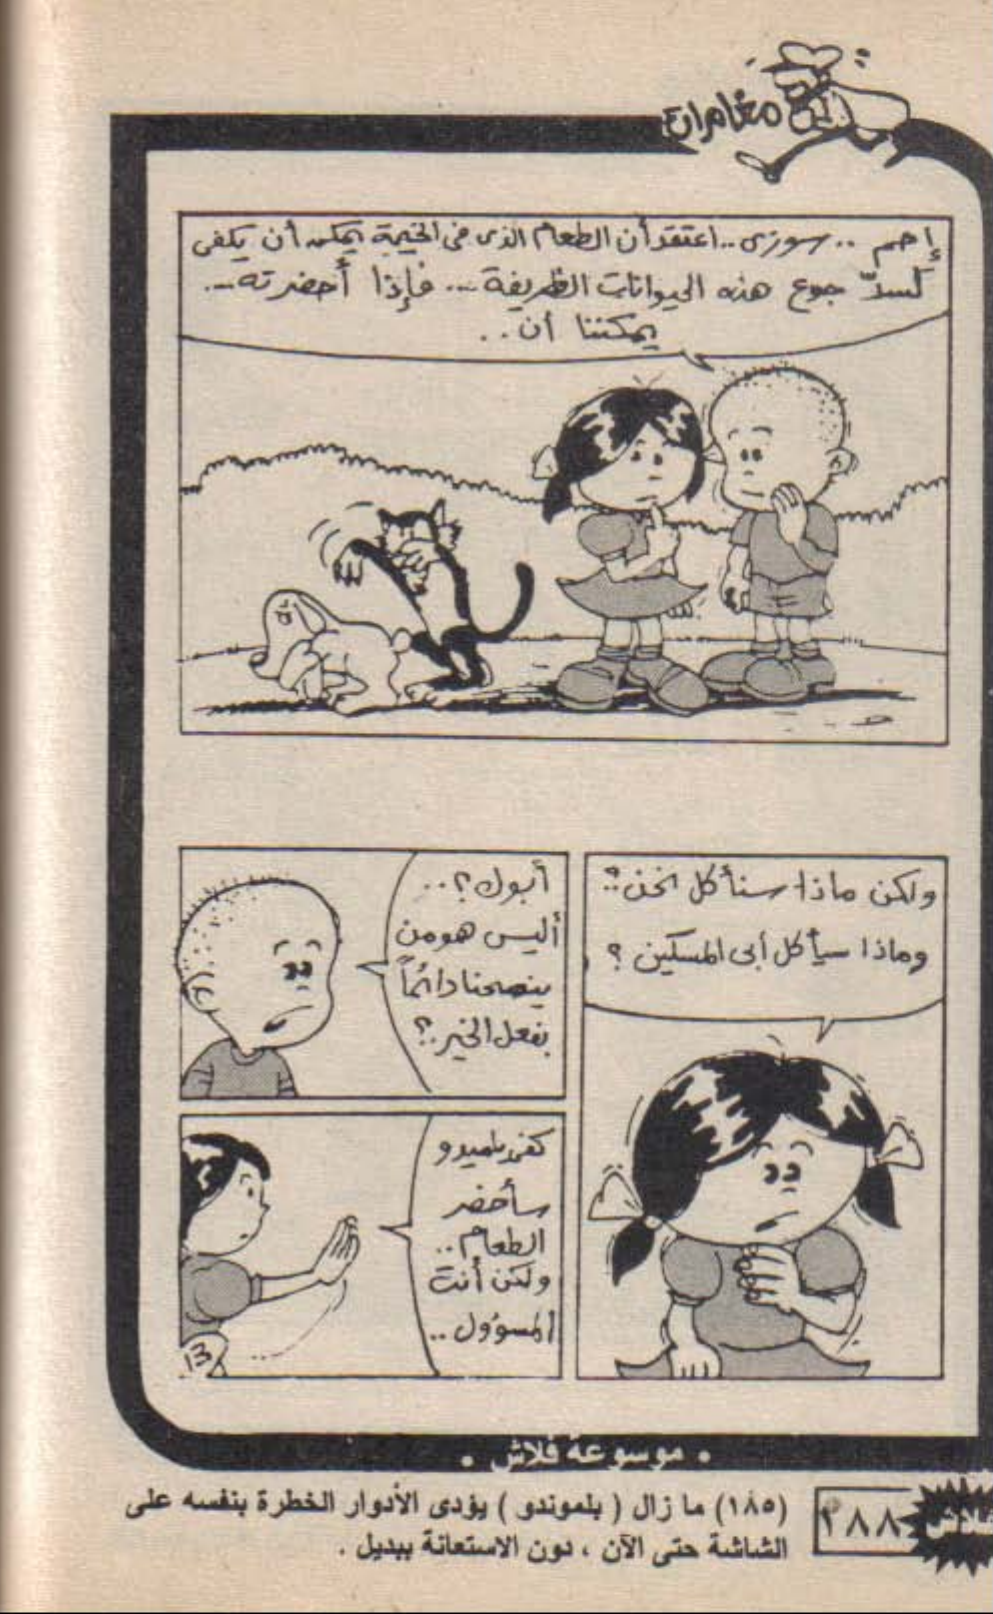 مغامرات
إحم .. سوزى .. اعتقد أن الطعام الذى فى الخيمة يمكن أن يكفى
لسدّ جوع هذه الحيوانات الظريفة ... فإذا أحضرته ...
يمكننا أن ..
ولكن ماذا سنأكل نحن ؟
وماذا سيأكل أبى المسكين ؟
أبوك ؟ ..
أليس هو من
ينصحنا دائماً
بفعل الخير .. ؟
كفى يا ميدو
سأحضر
الطعام ..
ولكن أنت
المسؤول ..
• موسوعة فلاش •
(١٨٥) ما زال ( بلموندو ) يؤدى الأدوار الخطرة بنفسه على
الشاشة حتى الآن ، دون الاستعانة ببديل .
٢٨٨